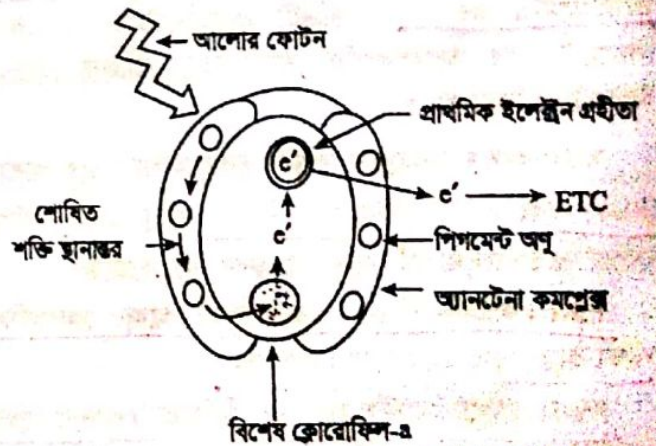 আলোর ফোটন
প্রাথমিক ইলেক্ট্রন গ্রহীতা
e′
e′ ETC
শোষিত
শক্তি স্থানান্তর
e′
পিগমেন্ট অনু
অ্যানটেনা কমপ্লেক্স
বিশেষ ক্লোরোফিল-a